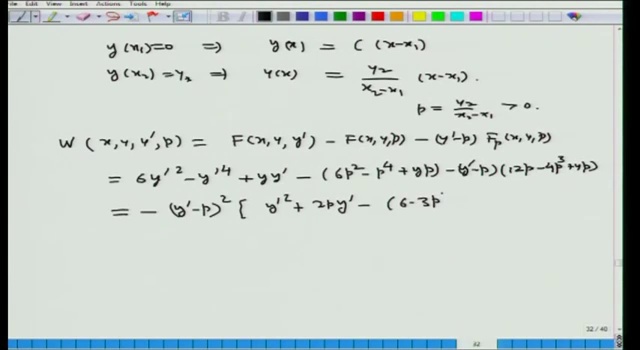 File Edit View Insert Actions Tools Help
y(x₁)=0 ⇒ y(x) = C (x-x₁)
y(x₂)=y₂ ⇒ y(x) = y₂/(x₂-x₁) (x-x₁).
p = y₂/(x₂-x₁) > 0.
W (x, y, y', p) = F(x, y, y') - F(x, y, p) - (y'-p) Fₚ(x, y, p)
= 6y'² - y'⁴ + yy' - (6p² - p⁴ + yp) - (y'-p)(12p-4p³+yp)
= - (y'-p)² [ y'² + 2py' - (6-3p
32 / 40
32